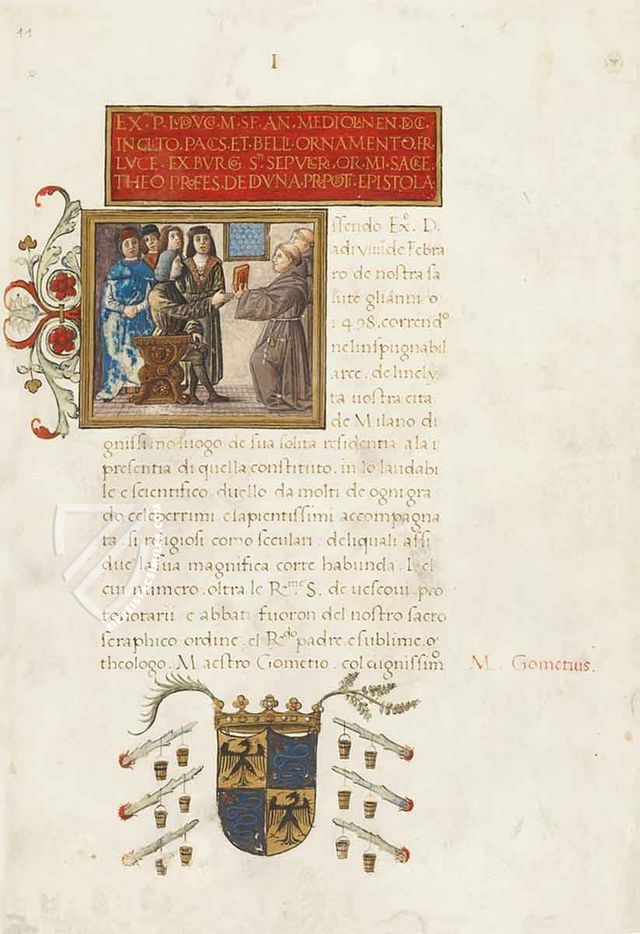 11
I
EXᵐᵒ P. LVDVCO. M. SF. AN. MEDIOLANEN. DVC.
INCLITO. PACIS. ET. BELLI. ORNAMENTO. FR.
LVCE. EX BVRGO Sᵗⁱ SEPVLCRI. OR. MI. SACRE.
THEO PROFES. DE DIVINA. PROPOT. EPISTOLA
ssendo Exº. D.
a di viiii. de Febra
ro de nostra sa
lute gli anni o
1498. correndº
nel inspugnabil
arce. de linely
ta vostra cita
de Milano di
gnissimo luogo de sua solita residentia a la i
presentia di quella constituto. in lo laudabi
le e scientifico. duello da molti de ogni gra
do celeberrimi e sapientissimi accompagna
ta. si religiosi como seculari: deli quali assi
due la sua magnifica corte habunda. Del
cui numero. oltra le Rᵐᵉ S. de vescovi. pro
tonotarii e abbati fuoron del nostro sacro
seraphico ordine. el Rᵈᵒ padre e sublime.
theologo. Maestro Gometio. col dignissimº
M. Gometius.